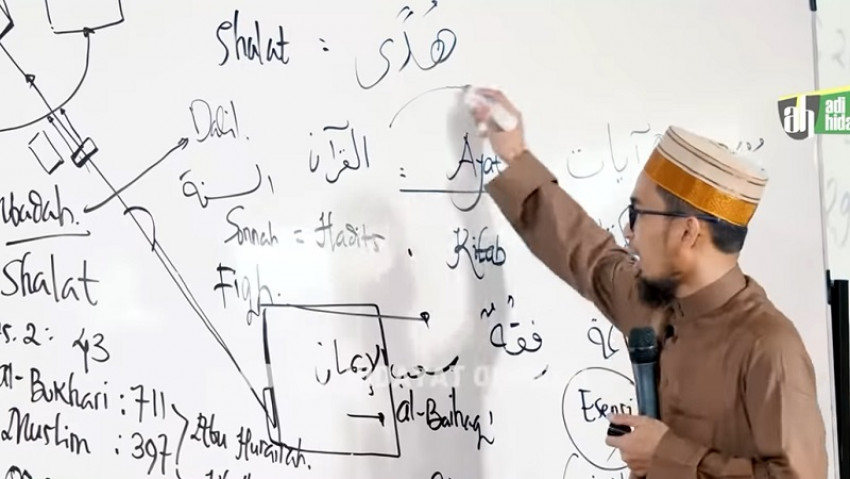 Shalat : هُدًى
adi
ah hida
Dalil.
القرآن : Ayat آيات
السنة
Sunnah = Hadits . Kitab
badah.
Shalat
Fiqh. فقه
s. 2: 43
الإيمان
al-Baihaqi
Esensi
al-Bukhari : 711
Muslim : 397
Abu Hurairah.